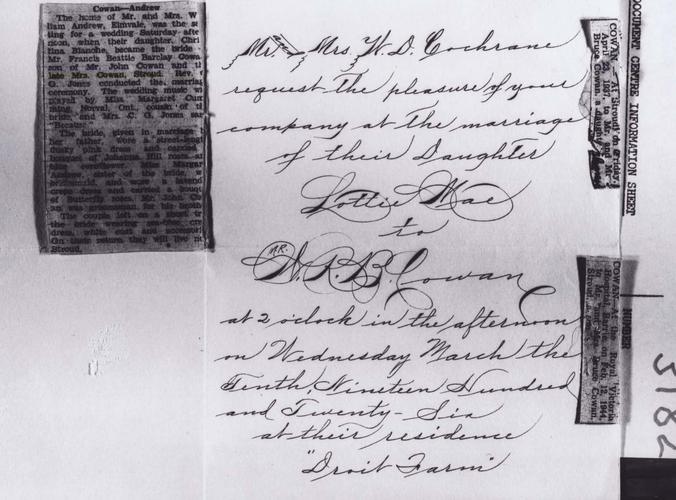 Cowan—Andrew
The home of Mr. and Mrs. W
liam Andrew, Elmvale, was the se
ting for a wedding Saturday afte
noon, when their daughter, Chri
tina Blanche, became the bride
Mr. Francis Beattie Barclay Cowa
son of Mr. John Cowan and th
late Mrs. Cowan, Stroud. Rev.
G. Jones conducted the marriag
ceremony. The wedding music w
played by Miss Margaret Cum
ming, Norval, Ont., cousin of th
bride, and Mrs. C. G. Jones san
"Because."
The bride, given in marriage
her father, wore a street-leng
dusky blue dress and carried
bouquet of Johanna Hill roses.
Andrew, sister of the bride, w
bridesmaid, and wore a
crepe dress and carried a bouqu
of Butterfly roses. Mr. John Co
an was groomsman for his broth
The couple left on a short tr
the bride wearing
dress, white coat and accessori
On their return they will live
Stroud.
Mr. and Mrs. W. D. Cochrane
request the pleasure of your
company at the marriage
of their Daughter
Lottie Mae
to
MR.
N. P. B. Cowan
at 2 o'clock in the afternoon
on Wednesday March the
Tenth, Nineteen Hundred
and Twenty-Six
at their residence
"Droit Farm"
COWAN — At Stroud on Friday,
April 23, 1937, to Mr. and Mrs.
Bruce Cowan, a daughter
COWAN—At the Royal Victoria
Hospital, Barrie, on Feb. 12, 1944,
to Mr. and Mrs. Bruce Cowan,
Stroud,
DOCUMENT CENTRE INFORMATION SHEET
NUMBER
3182